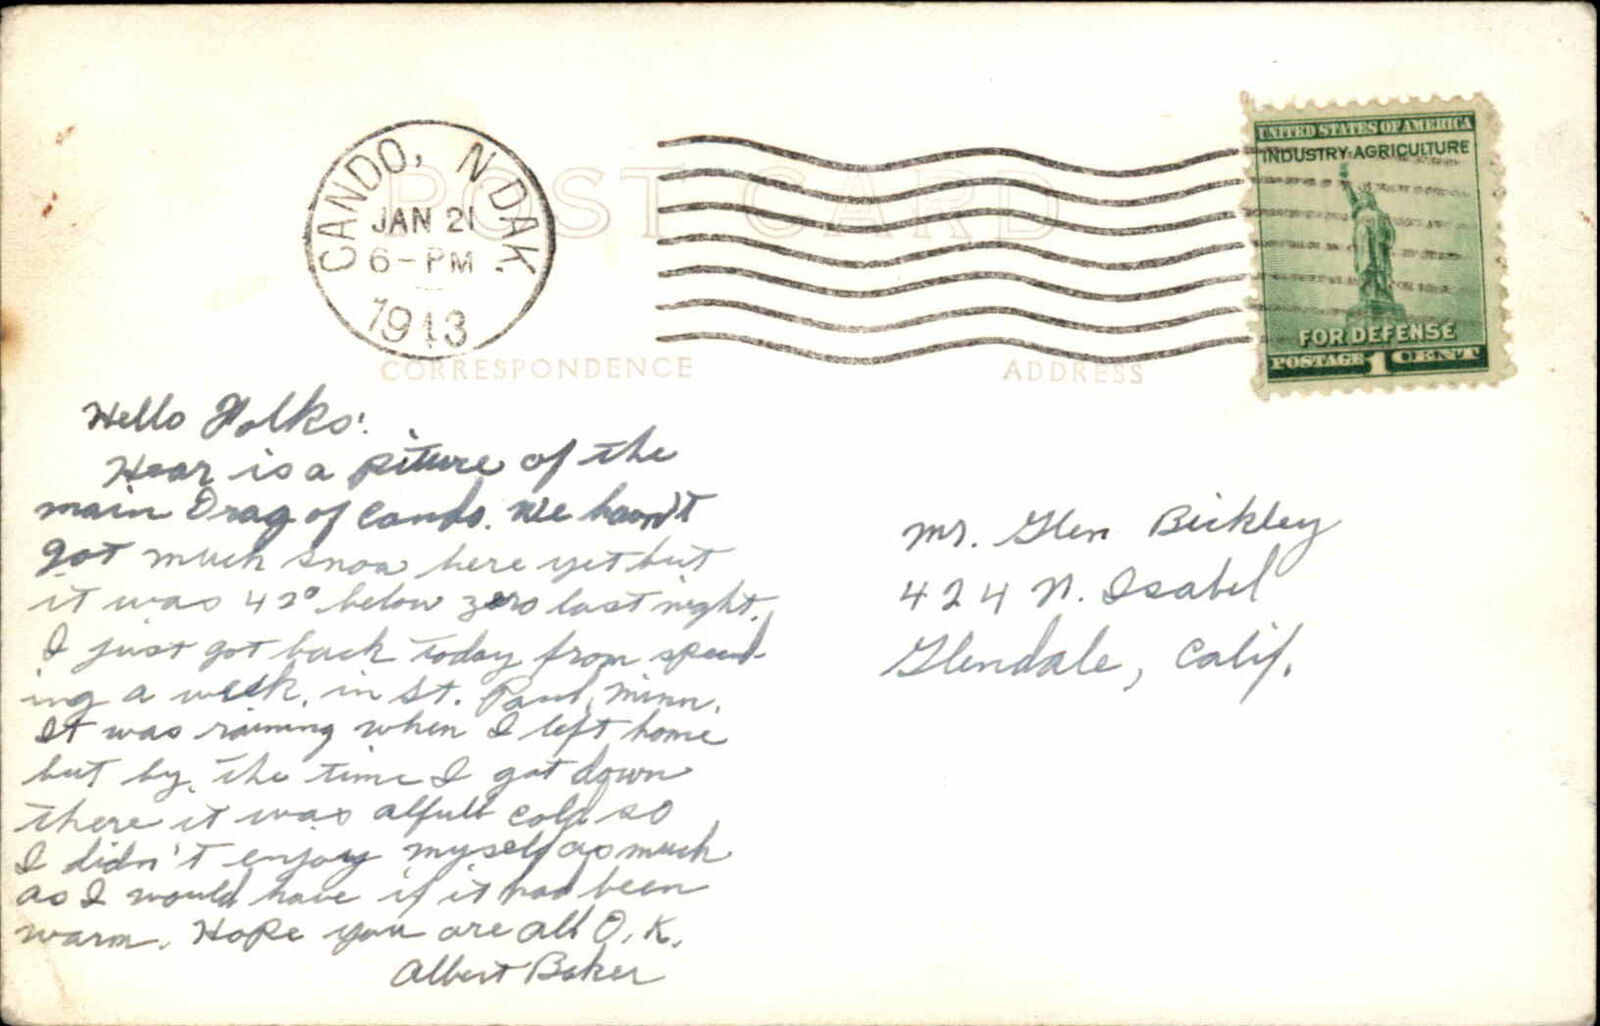 CANDO, N DAK.
JAN 21
6-PM
1943
POST CARD
UNITED STATES OF AMERICA
INDUSTRY-AGRICULTURE
FOR DEFENSE
POSTAGE 1 CENT
CORRESPONDENCE
ADDRESS
Hello Folks:
Hear is a piture of the
main Drag of Cando. We havn't
got much snow here yet but
it was 42° below zero last night.
I just got back today from spend-
ing a week, in St. Paul, Minn.
It was raining when I left home
but by, the time I got down
there it was alfull cold so
I didn't enjoy myself as much
as I would have if it had been
warm. Hope you are all O.K.
Albert Baker
Mr. Glen Bickley
424 N. Isabel
Glendale, Calif.